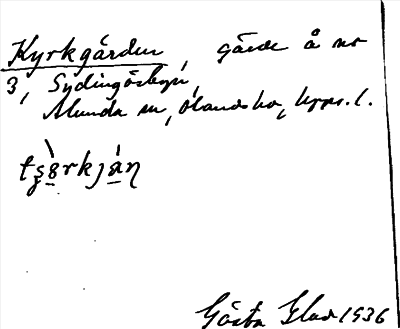 Kyrkgården, gärde å nr
3, Sydingösbyn,
Alunda sn, Olands hd, Upps. l.
tʂɵ̀rkján
Gösta Glad 1936